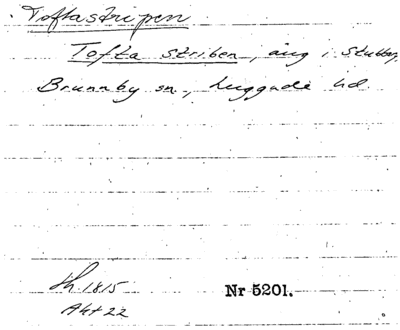 Toftastripen
Tofta striben, äng i Stubbar,
Brunnby sn., Luggude hd.
Sh. 1815
Akt 22
Nr 5201.